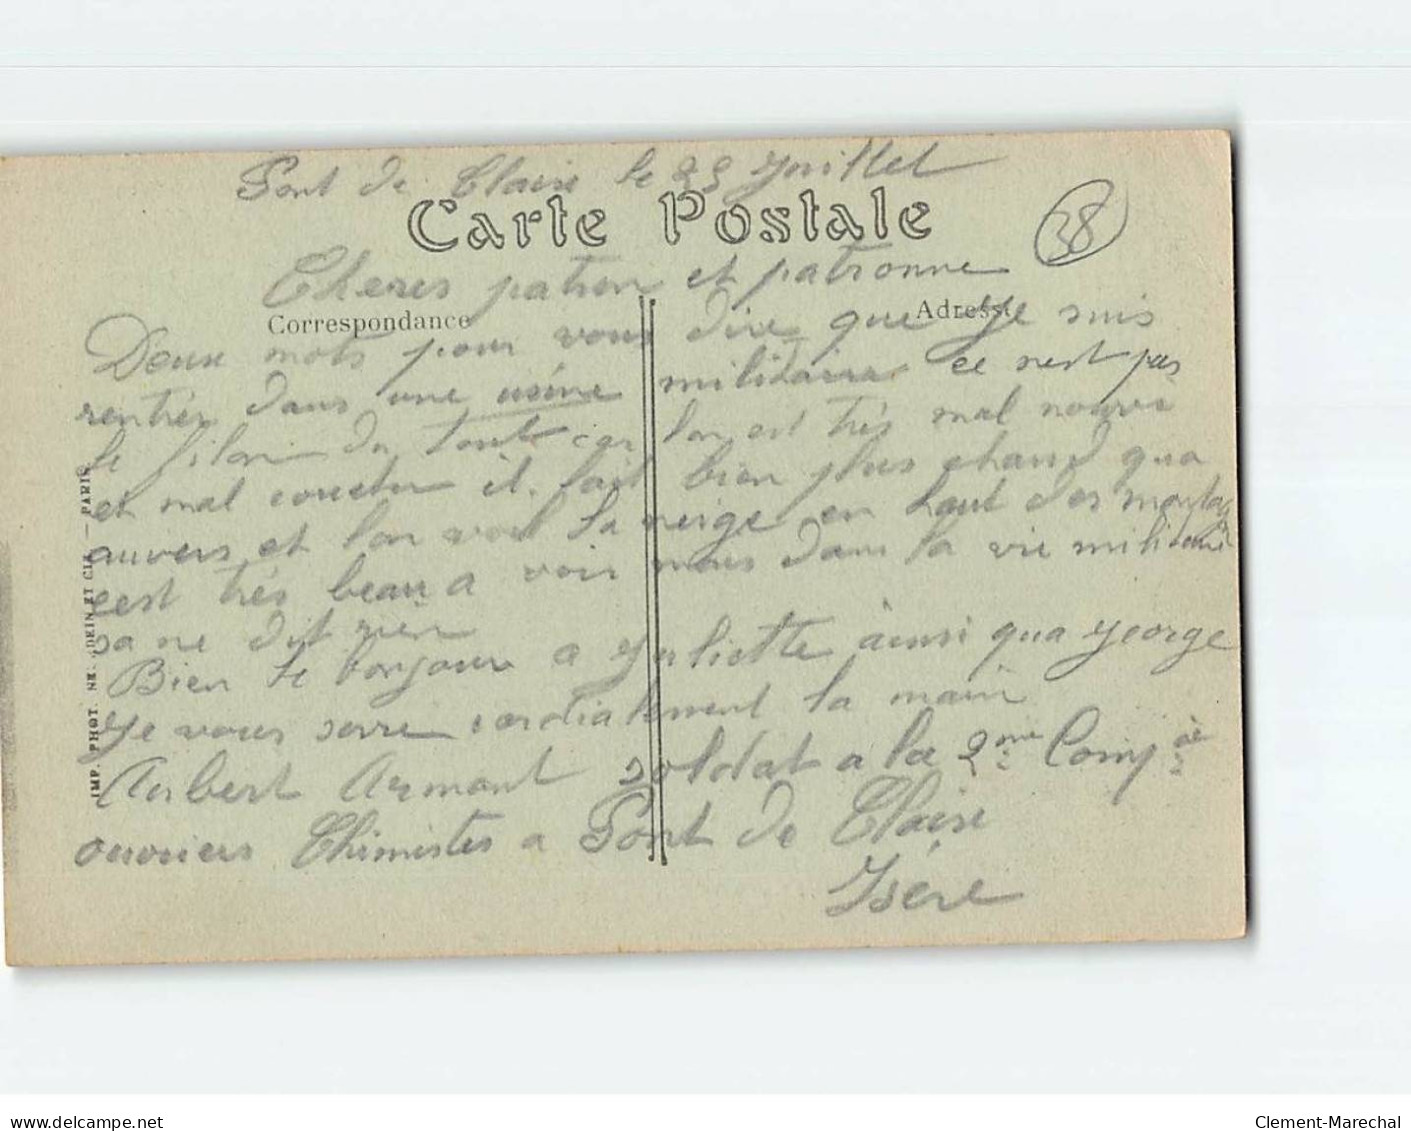 Pont de Claise le 23 Juillet
Carte Postale
38
Cheres patron et patronne
Correspondance
Adresse
Deux mots pour vous dire que Je suis
rentrer dans une usine militaire ce nest pas
le filon du tout car lon est très mal nourri
et mal coucher il fait bien plus chaud qua
auvers et lon voit la neige en haut des montag
cest très beau a voir mais dans la vie militaire
sa ne dit rien
Bien le bonjour a Juliette ainsi qua George
Je vous serre cordialement la main
Aubert Armant soldat a la 2me Compie
ouvriers Chimistes a Pont de Claise
Isère
IMP. PHOT. NEURDEIN ET CIE — PARIS
delcampe.net
Clement-Marechal